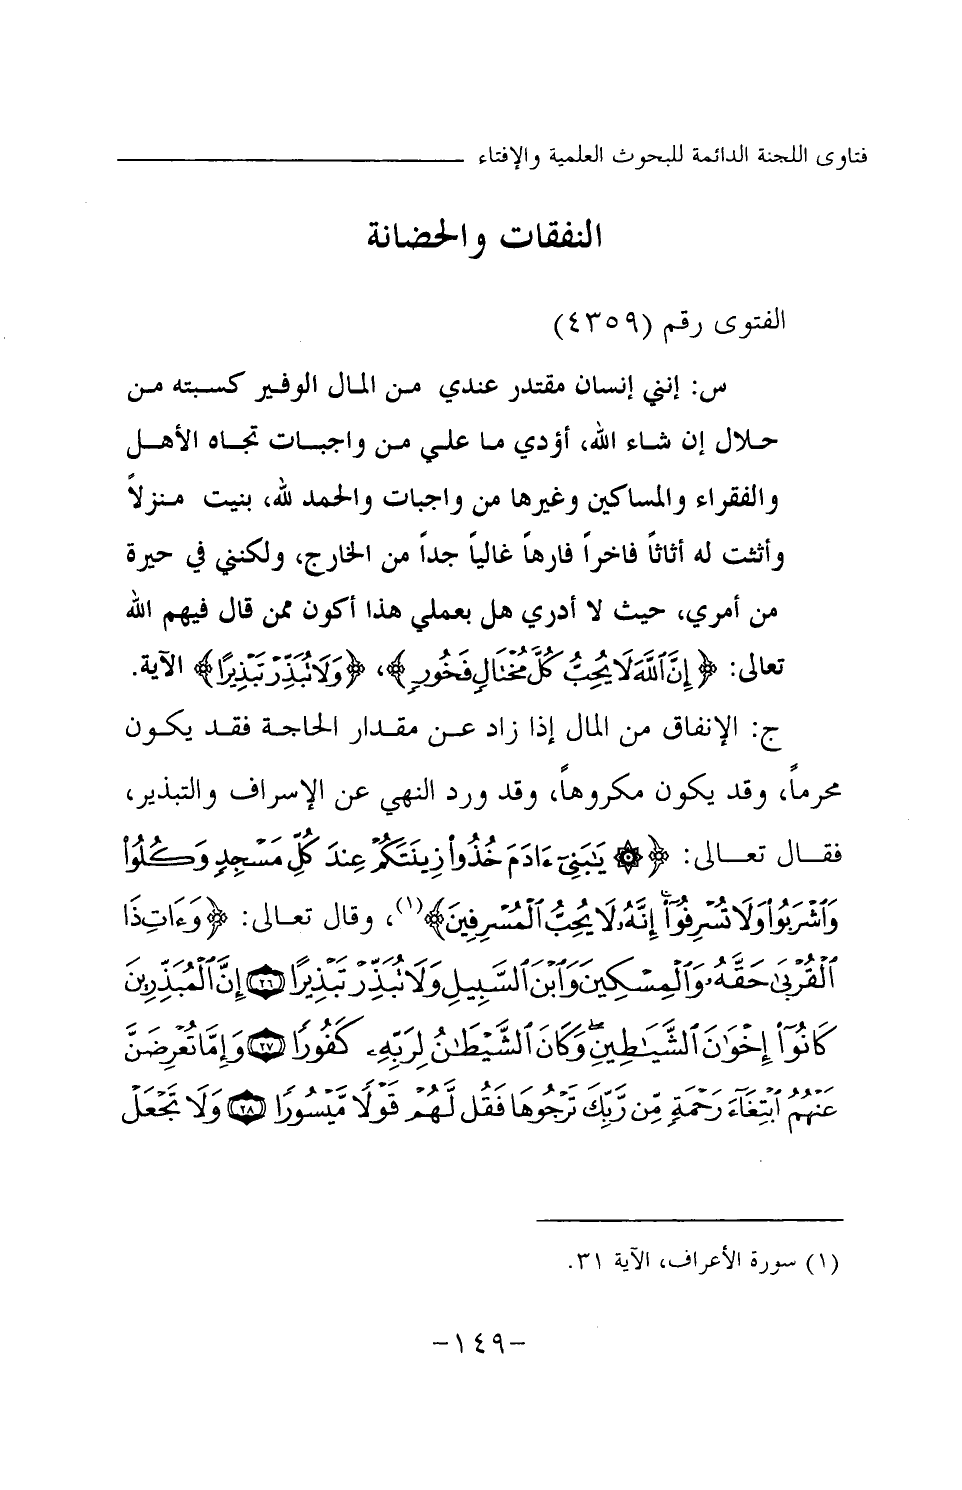 فتاوى اللجنة الدائمة للبحوث العلمية والإفتاء
النفقات والحضانة
الفتوى رقم (٤٣٥٩)
س: إنني إنسان مقتدر عندي من المال الوفير كسبته من
حلال إن شاء الله، أؤدي ما علي من واجبات تجاه الأهل
والفقراء والمساكين وغيرها من واجبات والحمد لله، بنيت منزلاً
وأثثت له أثاثاً فاخراً فارهاً غالياً جداً من الخارج، ولكنني في حيرة
من أمري، حيث لا أدري هل بعملي هذا أكون ممن قال فيهم الله
تعالى: ﴿إِنَّ ٱللَّهَ لَا يُحِبُّ كُلَّ مُخْتَالٍ فَخُورٍ﴾، ﴿وَلَا تُبَذِّرْ تَبْذِيرًا﴾ الآية.
ج: الإنفاق من المال إذا زاد عن مقدار الحاجة فقد يكون
محرماً، وقد يكون مكروهاً، وقد ورد النهي عن الإسراف والتبذير،
فقال تعالى: ﴿۞ يَٰبَنِىٓ ءَادَمَ خُذُوا۟ زِينَتَكُمْ عِندَ كُلِّ مَسْجِدٍ وَكُلُوا۟
وَٱشْرَبُوا۟ وَلَا تُسْرِفُوٓا۟ ۚ إِنَّهُۥ لَا يُحِبُّ ٱلْمُسْرِفِينَ﴾(١)، وقال تعالى: ﴿وَءَاتِ ذَا
ٱلْقُرْبَىٰ حَقَّهُۥ وَٱلْمِسْكِينَ وَٱبْنَ ٱلسَّبِيلِ وَلَا تُبَذِّرْ تَبْذِيرًا ﴿٢٦﴾ إِنَّ ٱلْمُبَذِّرِينَ
كَانُوٓا۟ إِخْوَٰنَ ٱلشَّيَٰطِينِ ۖ وَكَانَ ٱلشَّيْطَٰنُ لِرَبِّهِۦ كَفُورًا ﴿٢٧﴾ وَإِمَّا تُعْرِضَنَّ
عَنْهُمُ ٱبْتِغَآءَ رَحْمَةٍ مِّن رَّبِّكَ تَرْجُوهَا فَقُل لَّهُمْ قَوْلًا مَّيْسُورًا ﴿٢٨﴾ وَلَا تَجْعَلْ
(١) سورة الأعراف، الآية ٣١.
-١٤٩-